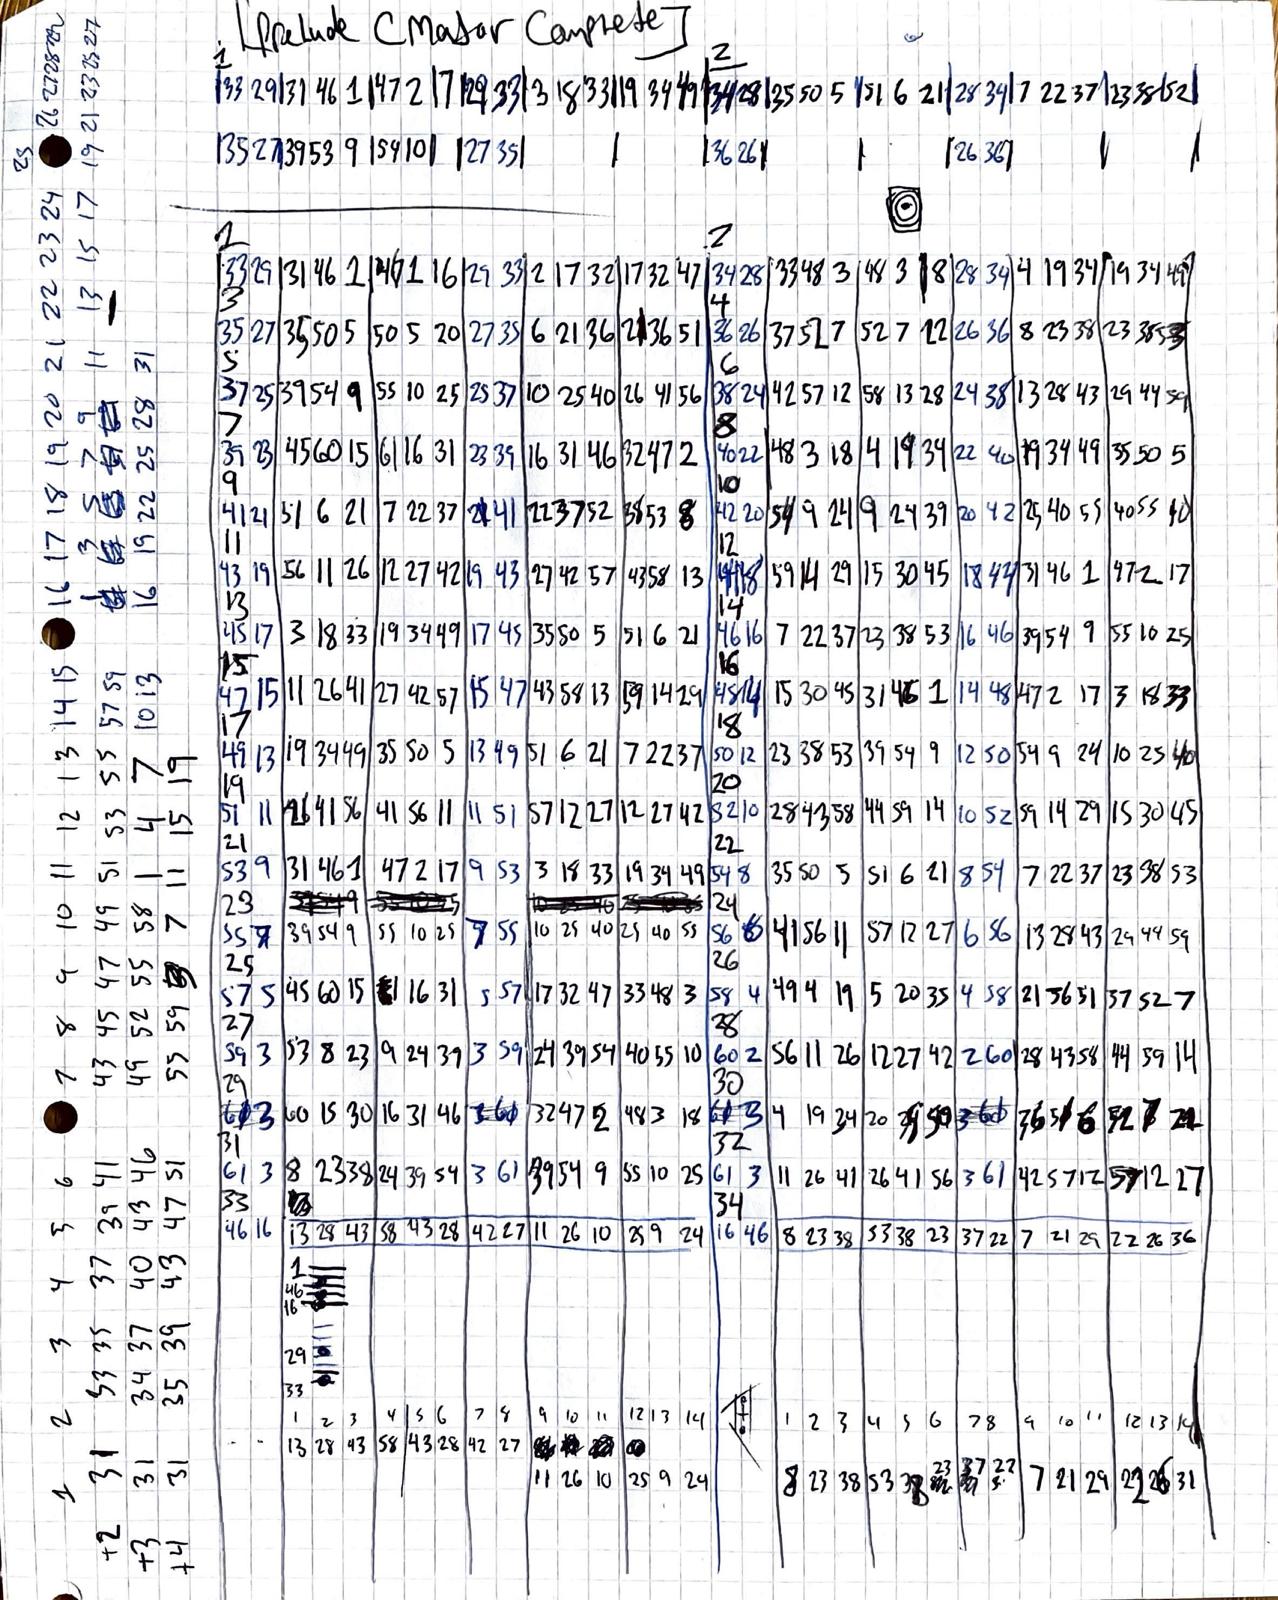 [Prelude C Major Complete]
1 2
33 29 31 46 1 47 2 17 29 33 3 18 33 19 34 49 34 28 35 50 5 51 6 21 28 34 7 22 37 23 38 52
35 27 39 53 9 54 10 27 35 36 26 26 36
1 2
33 29 31 46 1 46 1 16 29 33 2 17 32 17 32 47 34 28 33 48 3 48 3 18 28 34 4 19 34 19 34 49
3 4
35 27 35 50 5 50 5 20 27 35 6 21 36 21 36 51 36 26 37 52 7 52 7 22 26 36 8 23 38 23 38 53
5 6
37 25 39 54 9 55 10 25 25 37 10 25 40 26 41 56 38 24 42 57 12 58 13 28 24 38 13 28 43 29 44 59
7 8
39 23 45 60 15 61 16 31 23 39 16 31 46 32 47 2 40 22 48 3 18 4 19 34 22 40 19 34 49 35 50 5
9 10
41 21 51 6 21 7 22 37 21 41 22 37 52 38 53 8 42 20 54 9 24 9 24 39 20 42 25 40 55 40 55 10
11 12
43 19 56 11 26 12 27 42 19 43 27 42 57 43 58 13 44 18 59 14 29 15 30 45 18 44 31 46 1 47 2 17
13 14
45 17 3 18 33 19 34 49 17 45 35 50 5 51 6 21 46 16 7 22 37 23 38 53 16 46 39 54 9 55 10 25
15 16
47 15 11 26 41 27 42 57 15 47 43 58 13 59 14 29 48 14 15 30 45 31 46 1 14 48 47 2 17 3 18 33
17 18
49 13 19 34 49 35 50 5 13 49 51 6 21 7 22 37 50 12 23 38 53 39 54 9 12 50 54 9 24 10 25 40
19 20
51 11 26 41 56 41 56 11 11 51 57 12 27 12 27 42 52 10 28 43 58 44 59 14 10 52 59 14 29 15 30 45
21 22
53 9 31 46 1 47 2 17 9 53 3 18 33 19 34 49 54 8 35 50 5 51 6 21 8 54 7 22 37 23 38 53
23 24
55 7 39 54 9 55 10 25 7 55 10 25 40 25 40 55 56 6 41 56 11 57 12 27 6 56 13 28 43 29 44 59
25 26
57 5 45 60 15 61 16 31 5 57 17 32 47 33 48 3 58 4 49 4 19 5 20 35 4 58 21 36 51 37 52 7
27 28
59 3 53 8 23 9 24 39 3 59 24 39 54 40 55 10 60 2 56 11 26 12 27 42 2 60 28 43 58 44 59 14
29 30
61 3 60 15 30 16 31 46 3 61 32 47 2 48 3 18 61 3 4 19 34 20 3 61 36 51 6 52 7 22
31 32
61 3 8 23 38 24 39 54 3 61 39 54 9 55 10 25 61 3 11 26 41 26 41 56 3 61 42 57 12 57 12 27
33 34
46 16 13 28 43 58 43 28 42 27 11 26 10 25 9 24 16 46 8 23 38 53 38 23 37 22 7 21 29 22 26 36
1
46
16
29
33
1 2 3 4 5 6 7 8 9 10 11 12 13 14 1 2 3 4 5 6 7 8 9 10 11 12 13 14
13 28 43 58 43 28 42 27
11 26 10 25 9 24 8 23 38 53 38 23 37 22 7 21 29 22 26 31
1 2 3 4 5 6 7 8 9 10 11 12 13 14 15 16 17 18 19 20 21 22 23 24 25 26 27 28 29
+2 31 33 35 37 39 41 43 45 47 49 51 53 55 57 59 1 3 5 7 9 11 13 15 17 19 21 23 25 27
+3 31 34 37 40 43 46 49 52 55 58 1 4 7 10 13 16 19 22 25 28 31
+4 31 35 39 43 47 51 55 59 3 7 11 15 19